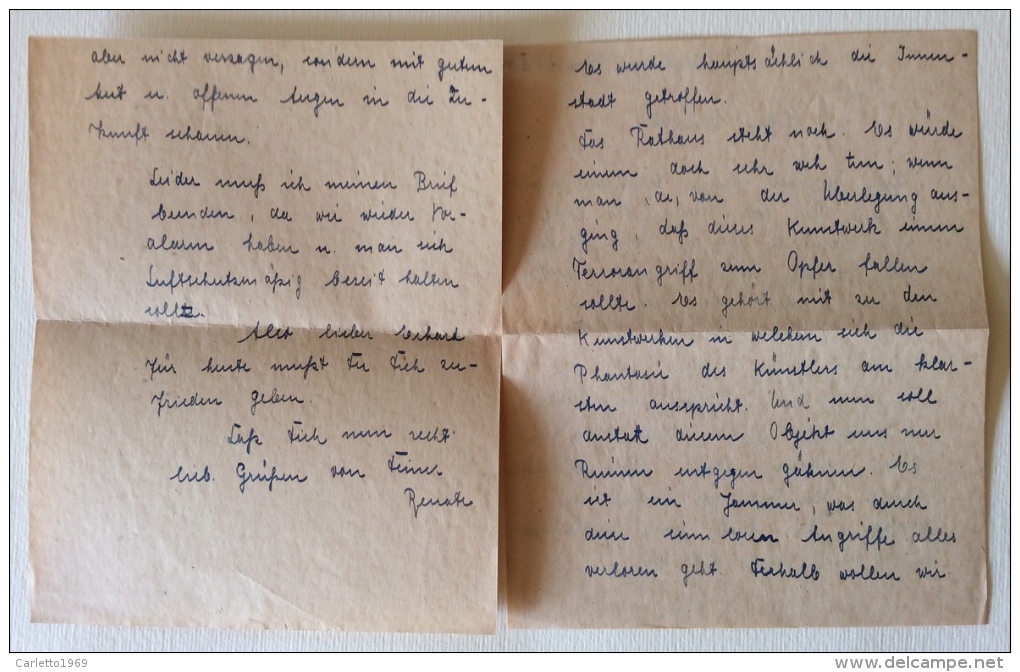 Es wurde hauptsächlich die Innen-
stadt getroffen.
Das Rathaus steht noch. Es würde
einem doch sehr weh tun; wenn
man, da, von der Überlegung aus-
ging, daß dieses Kunstwerk einem
Terrorangriff zum Opfer fallen
sollte. Es gehört mit zu den
Kunstwerken in welchem sich die
Phantasie des Künstlers am klar-
sten ausspricht. Und nun soll
anstatt diesem Objekt uns nur
Ruinen entgegen gähnen. Es
ist ein Jammer, was durch
diese sinnlosen Angriffe alles
verloren geht. Deshalb wollen wir
aber nicht versagen, sondern mit gutem
Mut u. offenen Augen in die Zu-
kunft schauen.
Leider muß ich meinen Brief
beenden, da wir wieder Vor-
alarm haben u. man sich
Luftschutzmäßig bereit halten
sollte.
Also lieber Erhard
für heute mußt Du Dich zu-
frieden geben.
Laß Dich nun recht
lieb. Grüßen von Deiner
Renate
Carletto1969
www.delcampe.net